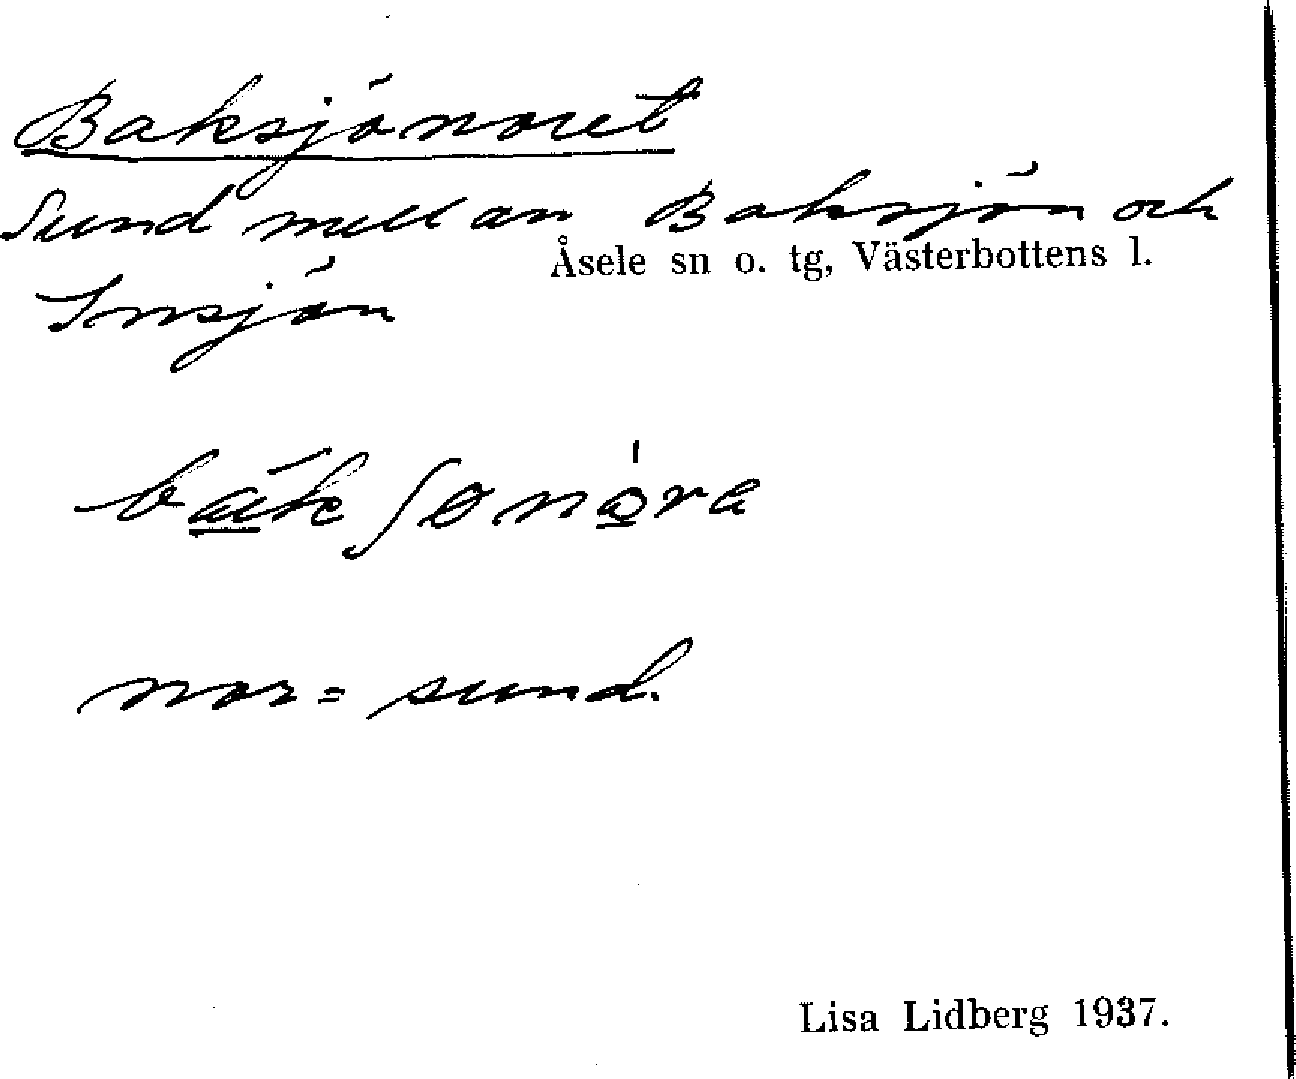 Baksjönoret
Sund mellan Baksjön och
Åsele sn o. tg, Västerbottens l.
Insjön
nor = sund.
Lisa Lidberg 1937.